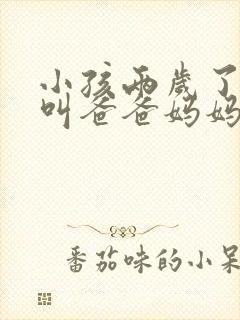 小孩两岁了
叫爸爸妈妈
番茄味的小呆